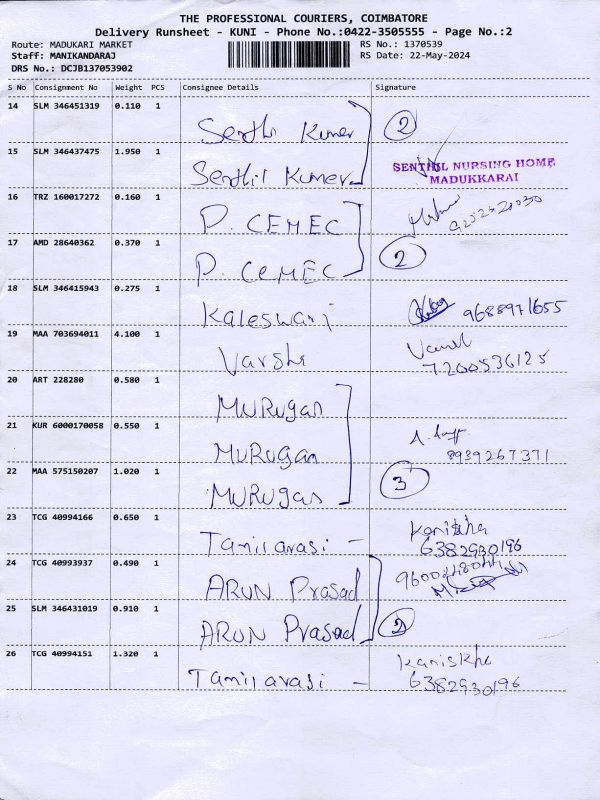 THE PROFESSIONAL COURIERS, COIMBATORE
Delivery Runsheet - KUNI - Phone No.:0422-3505555 - Page No.:2
Route: MADUKARI MARKET RS No.: 1370539
Staff: MANIKANDARAJ RS Date: 22-May-2024
DRS No.: DCJB137053902
S No Consignment No Weight PCS Consignee Details Signature
14 SLM 346451319 0.110 1 Senthil Kumar 2
15 SLM 346437475 1.950 1 Senthil Kumar
SENTHIL NURSING HOME
MADUKKARAI
16 TRZ 160017272 0.160 1 P. CEMEC
17 AMD 28640362 0.370 1 P. CEMEC 2
18 SLM 346415943 0.275 1 Kaleswari 9688971655
19 MAA 703694011 4.100 1 Varshi
7200536125
20 ART 228280 0.580 1 MURUGAN
21 KUR 6000170058 0.550 1 MURUGAN
8939267371
22 MAA 575150207 1.020 1 MURUGAN 3
23 TCG 40994166 0.650 1 Tamilarasi - Kaniskha
6382930196
24 TCG 40993937 0.490 1 ARUN Prasad
25 SLM 346431019 0.910 1 ARUN Prasad 2
26 TCG 40994151 1.320 1 Tamilarasi - Kaniskha
6382930196